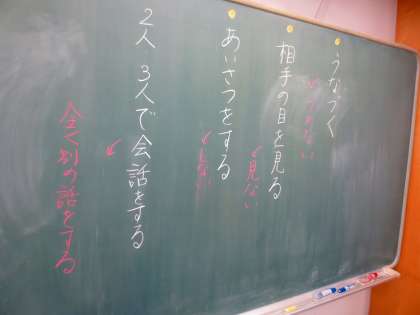 うなづく
↙うなづかない
相手の目を見る
↙見ない
あいさつをする
↙しない
2人 3人で会話をする
↙
全く別の話をする